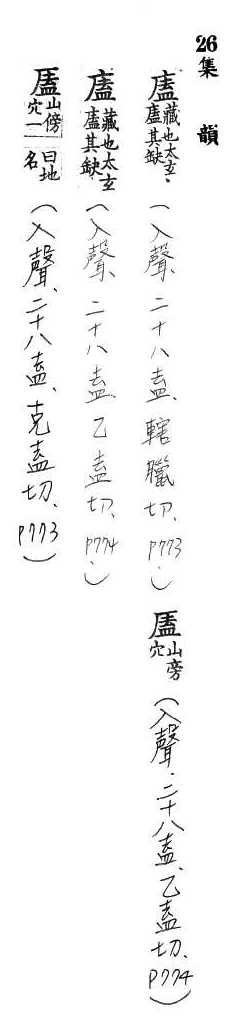 26 集 韻
廅藏也太玄廅其缺（入聲、二十八盍、轄臘切、P773。） 㕎山旁穴（入聲．二十八盍、乙盍切、P774）
廅藏也太玄廅其缺（入聲、二十八盍、乙盍切、P774。）
㕎山傍穴一曰地名（入聲、二十八盍、克盍切、P773）